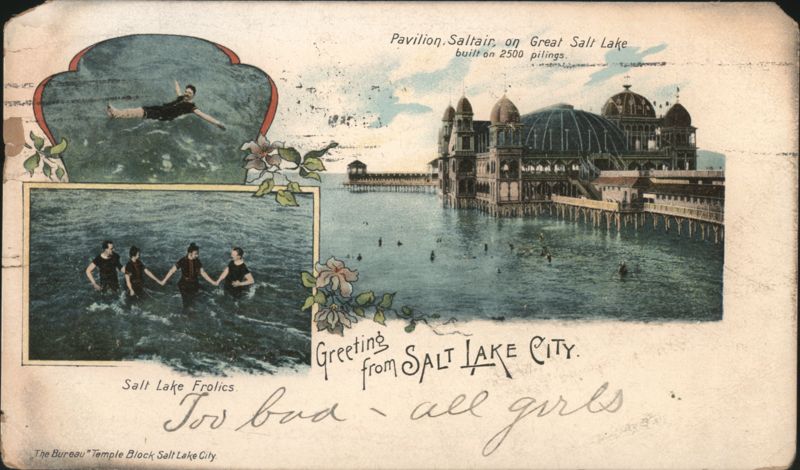 Pavilion, Saltair, on Great Salt Lake
built on 2500 pilings.
Greeting
from SALT LAKE CITY.
Salt Lake Frolics.
Too bad - all girls
"The Bureau" Temple Block, Salt Lake City.